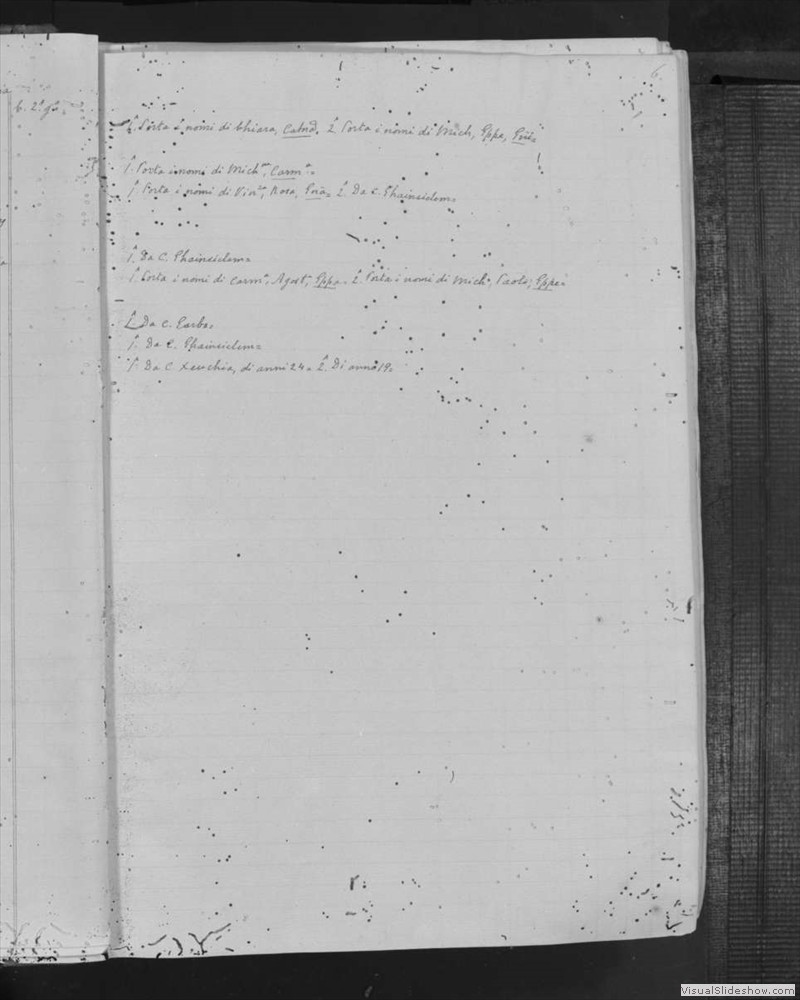 6.
b. 2. g.
1. Porta i nomi di Chiara, Calnd. 2. Porta i nomi di Mich, Gppe,
1. Porta i nomi di Mich, Carm.
1. Porta i nomi di Vin, Rosa, 2. Da C. Ghainsielem
1. Da C. Ghainsielem
1. Porta i nomi di Carm, Agost, Gppa. 2. Porta i nomi di Mich, Paolo, Gppe.
1. Da C. Garbo.
1. Da C. Ghainsielem
1. Da C. Xeuchia, di anni 24. 2. Di anni 19.
VisualSlideshow.com